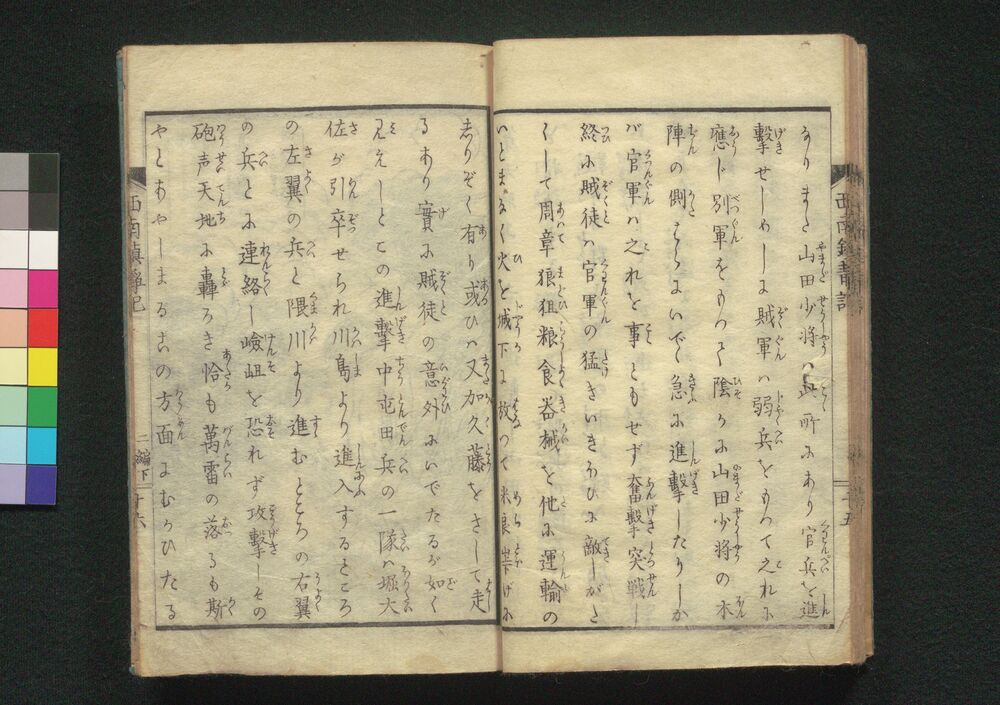 なりまた山田少将ハ此所にあり官兵を進
撃せしめしに賊軍ハ弱兵をもつて之れに
應じ別軍をもつて陰かに山田少将の本
陣の側らにいで急に進撃したりしか
バ官軍ハ之れを事ともせず奮撃突戦し
終に賊徒ハ官軍の猛きいきほひに敵しがた
くして周章狼狽粮食器械を他に運輸の
いとまなく火を城下に放つて米良嶽下げに
西南鎮静記
志りぞく有り或ひハ又加久藤をさして走
るあり實に賊徒の意外にいでたるが如く
見えしとこの進撃中屯田兵の一隊ハ堀大
佐が引卒せられ川島より進入するところ
の左翼の兵と隈川より進むところの右翼
の兵とに連絡し嶮岨を恐れず攻撃しその
砲声天地に轟ろき恰も萬雷の落るも斯
やとあやしまるこの方面にむかひたる
西南鎮静記
二編下
十六